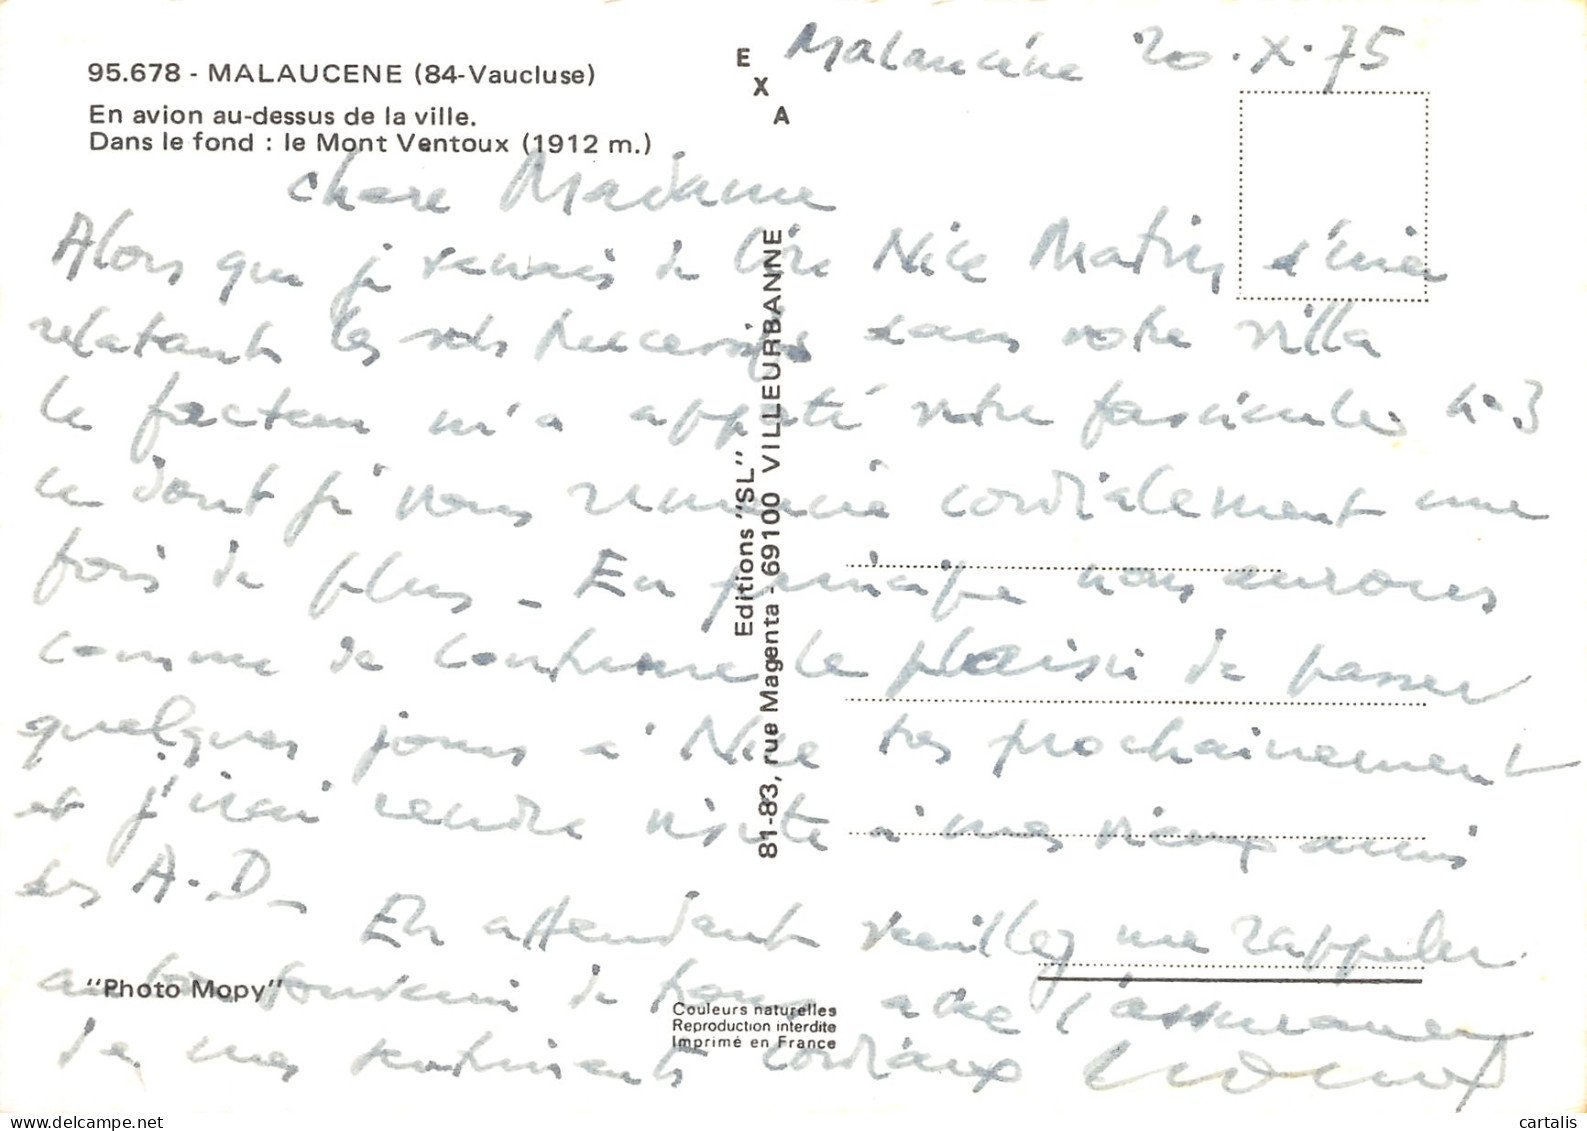 95.678 - MALAUCENE (84-Vaucluse)
En avion au-dessus de la ville.
Dans le fond : le Mont Ventoux (1912 m.)
E X A
Malaucène 20.X.75
chere Madame
Alors que je venais de lire Nice Matin d'hier
relatant les vols successifs dans votre villa
le facteur m'a apporté votre fascicule n° 3
dont je vous remercie cordialement une
fois de plus - En principe nous aurons
comme de coutume le plaisir de passer
quelques jours a Nice tres prochainement
et j'irai rendre visite à mes vieux amis
les A.D -
En attendant veuillez me rappeler
au bon souvenir de tous avec l'assurance
de mes sentiments cordiaux
Editions "SL"
81-83, rue Magenta - 69100 VILLEURBANNE
"Photo Mopy"
Couleurs naturelles
Reproduction interdite
Imprimé en France
delcampe.net
cartalis